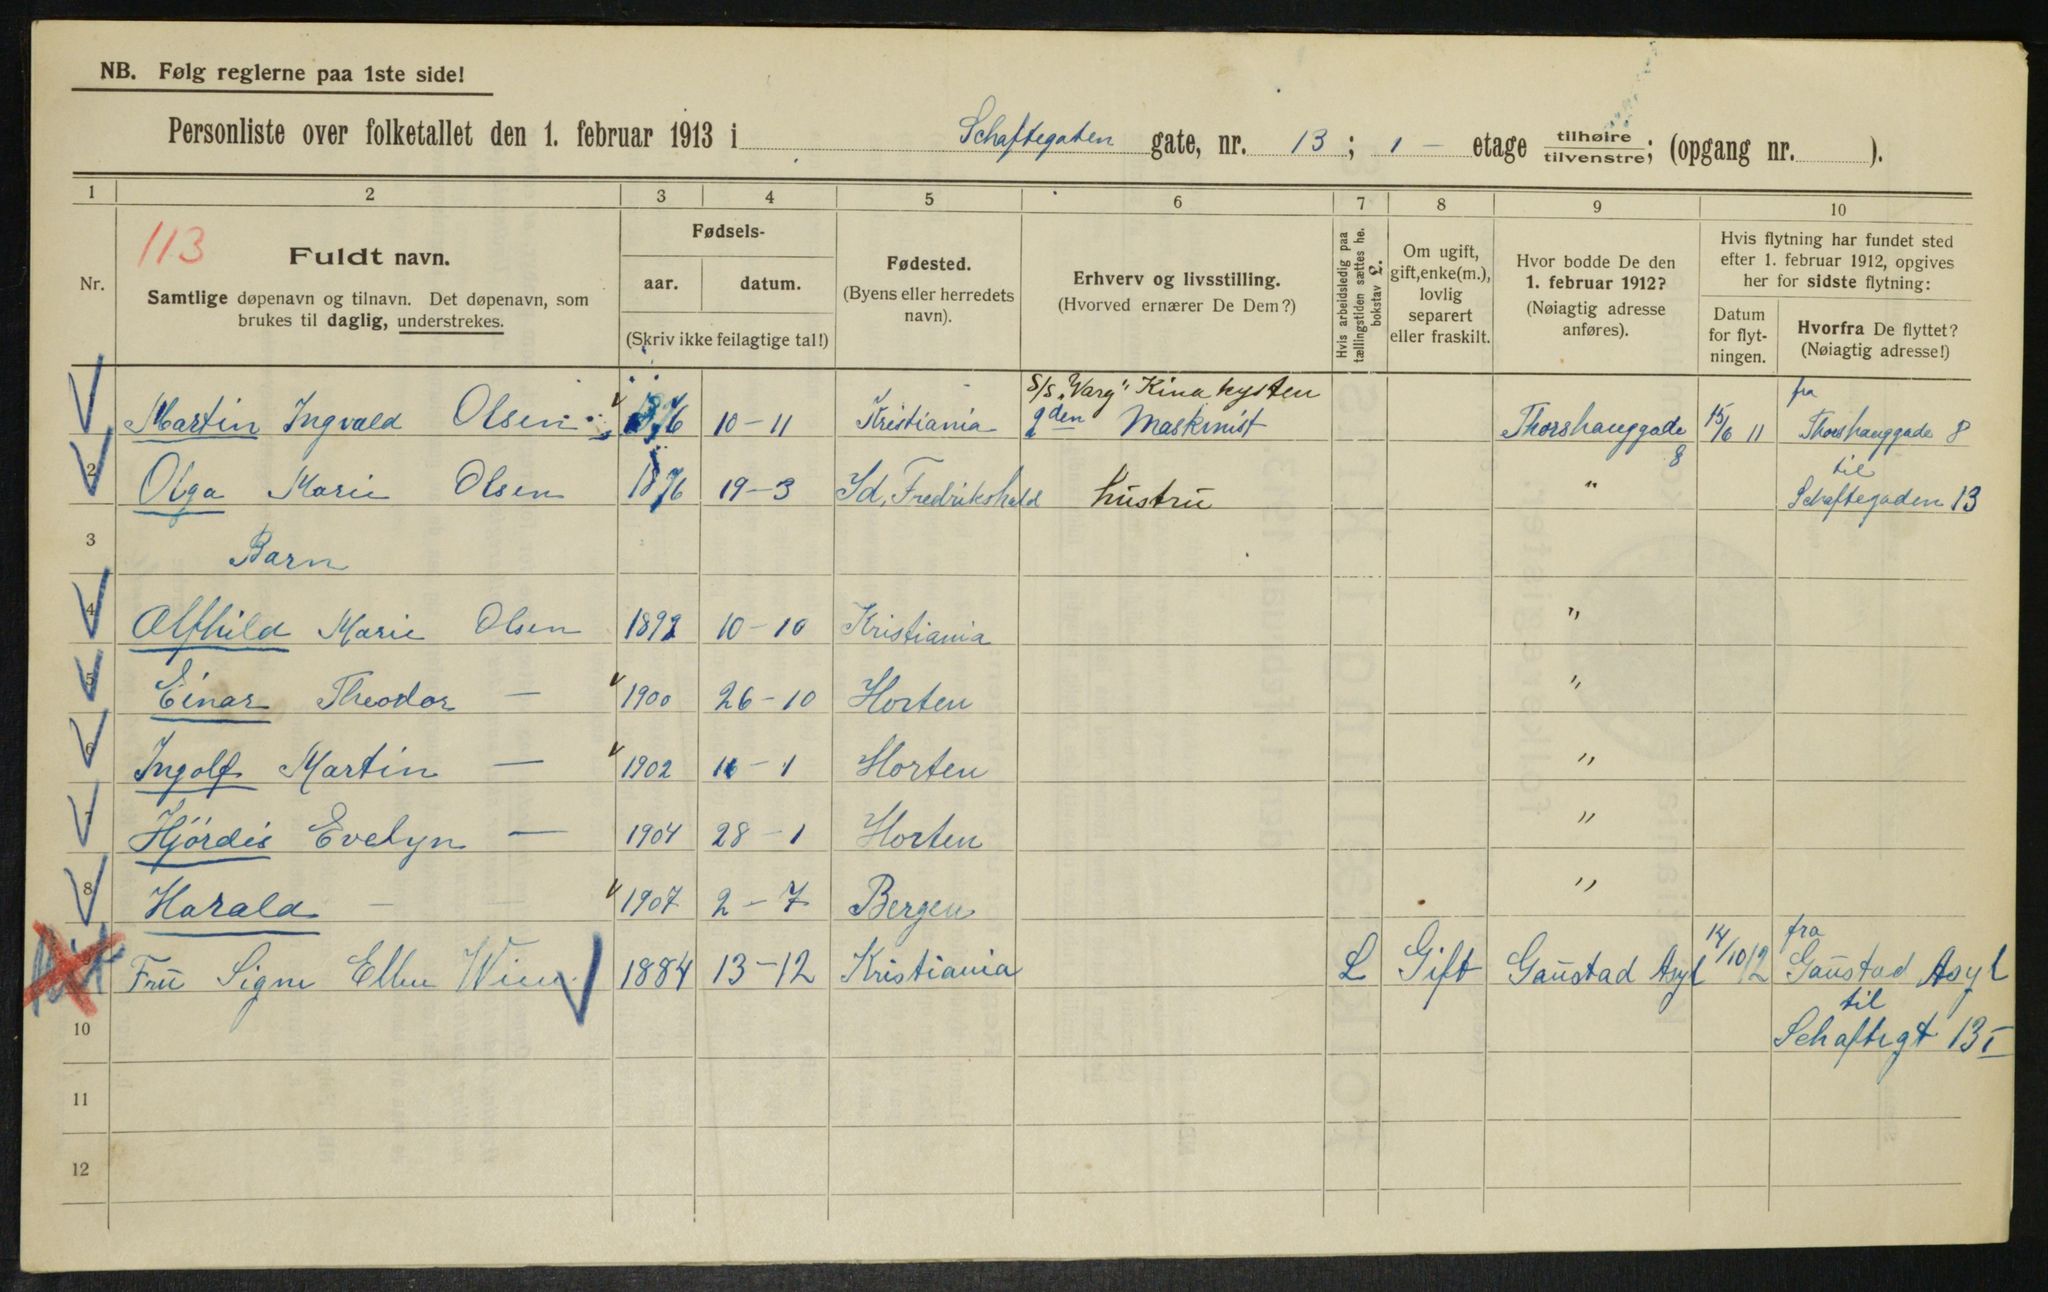 NB. Følg reglerne paa 1ste side!
Personliste over folketallet den 1. februar 1913 i Schaftegaten gate, nr. 13; 1 - etage tilhøire tilvenstre; (opgang nr. ).
1 2 3 4 5 6 7 8 9 10
113
Nr.
Fuldt navn.
Samtlige døpenavn og tilnavn. Det døpenavn, som
brukes til daglig, understrekes.
Fødsels-
aar. datum.
(Skriv ikke feilagtige tal!)
Fødested.
(Byens eller herredets
navn).
Erhverv og livsstilling.
(Hvorved ernærer De Dem?)
Hvis arbeidsledig paa
tællingstiden sættes he.
bokstav L.
Om ugift,
gift, enke(m.),
lovlig
separert
eller fraskilt.
Hvor bodde De den
1. februar 1912?
(Nøiagtig adresse
anføres).
Hvis flytning har fundet sted
efter 1. februar 1912, opgives
her for sidste flytning:
Datum
for flyt-
ningen.
Hvorfra De flyttet?
(Nøiagtig adresse!)
S/S "Varg" Kina kysten fra
Martin Ingvald Olsen 1876 10-11 Kristiania 2den Maskinist Thorshauggade 8 15/6 11 Thorshauggade 8
til
2 Olga Marie Olsen 1876 19-3 Id, Fredrikshald hustru " Schaftegaden 13
3 Barn
4 Alfhild Marie Olsen 1892 10-10 Kristiania "
5 Einar Theodor — 1900 26-10 Horten "
6 Ingolf Martin — 1902 16-1 Horten "
7 Hjördis Evelyn — 1904 28-1 Horten "
8 Harald — — 1907 2-7 Bergen "
fra
9 Frü Signe Ellen 1884 13-12 Kristiania L Gift Gaustad Asyl 14/10 12 Gaustad Asyl
til
10 Schaftegt 13 I
11
12